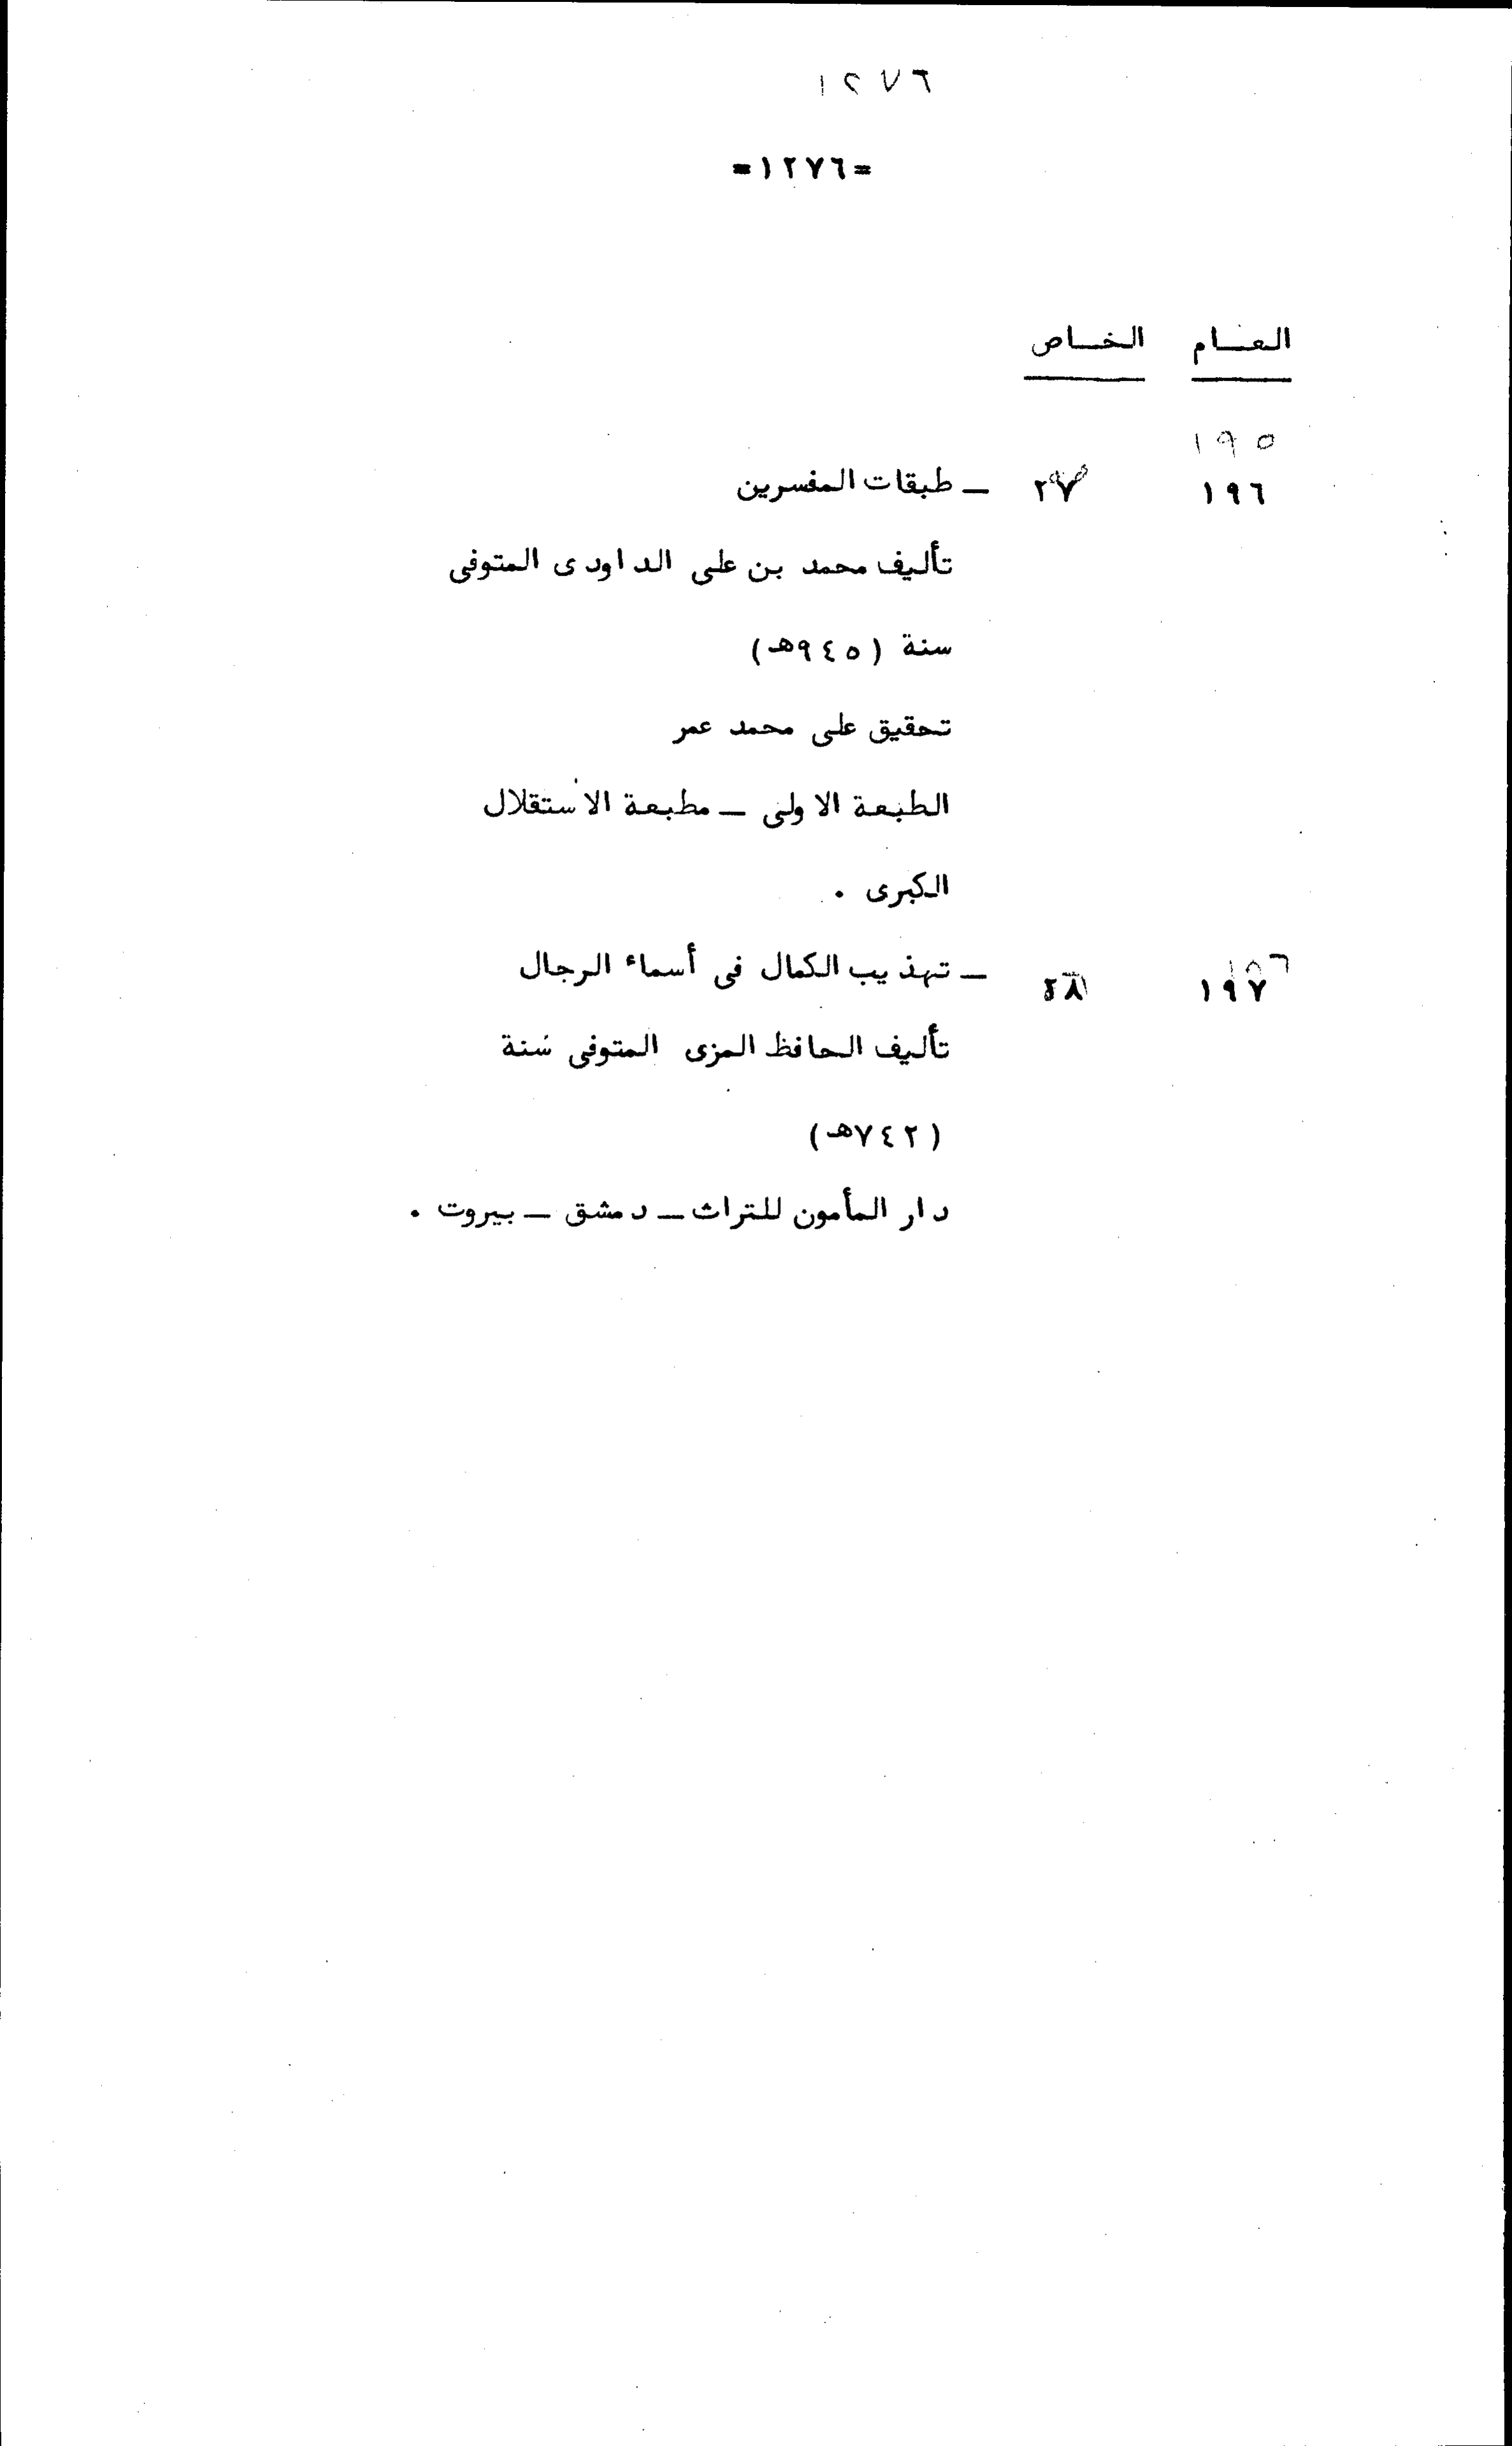 ١٢٧٦
=١٢٧٦=
العام الخاص
١٩٥
١٩٦ ٢٧ ـ طبقات المفسرين
تأليف محمد بن على الداودى المتوفى
سنة (٩٤٥هـ)
تحقيق على محمد عمر
الطبعة الاولى ـ مطبعة الاستقلال
الكبرى .
١٩٧ ٢٨ ـ تهذيب الكمال فى أسماء الرجال
تأليف الحافظ المزى المتوفى سنة
(٧٤٢هـ)
دار المأمون للتراث ـ دمشق ـ بيروت .